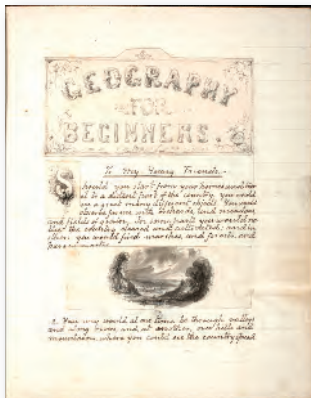 GEOGRAPHY
FOR
BEGINNERS.
To My Young Friends.
Should you start from your homes and trav
el to a distant part of the country, you would
see a great many different objects. You would
observe farms, with orchards, and meadows,
and fields of grain. In some parts you would no
tice the country cleared and cultivated; and in
others you would find marshes, and forests, and
barren wastes.
2. Your way would at one time lie through valleys
and along rivers, and at another, over hills and
mountains, where you could see the country spread